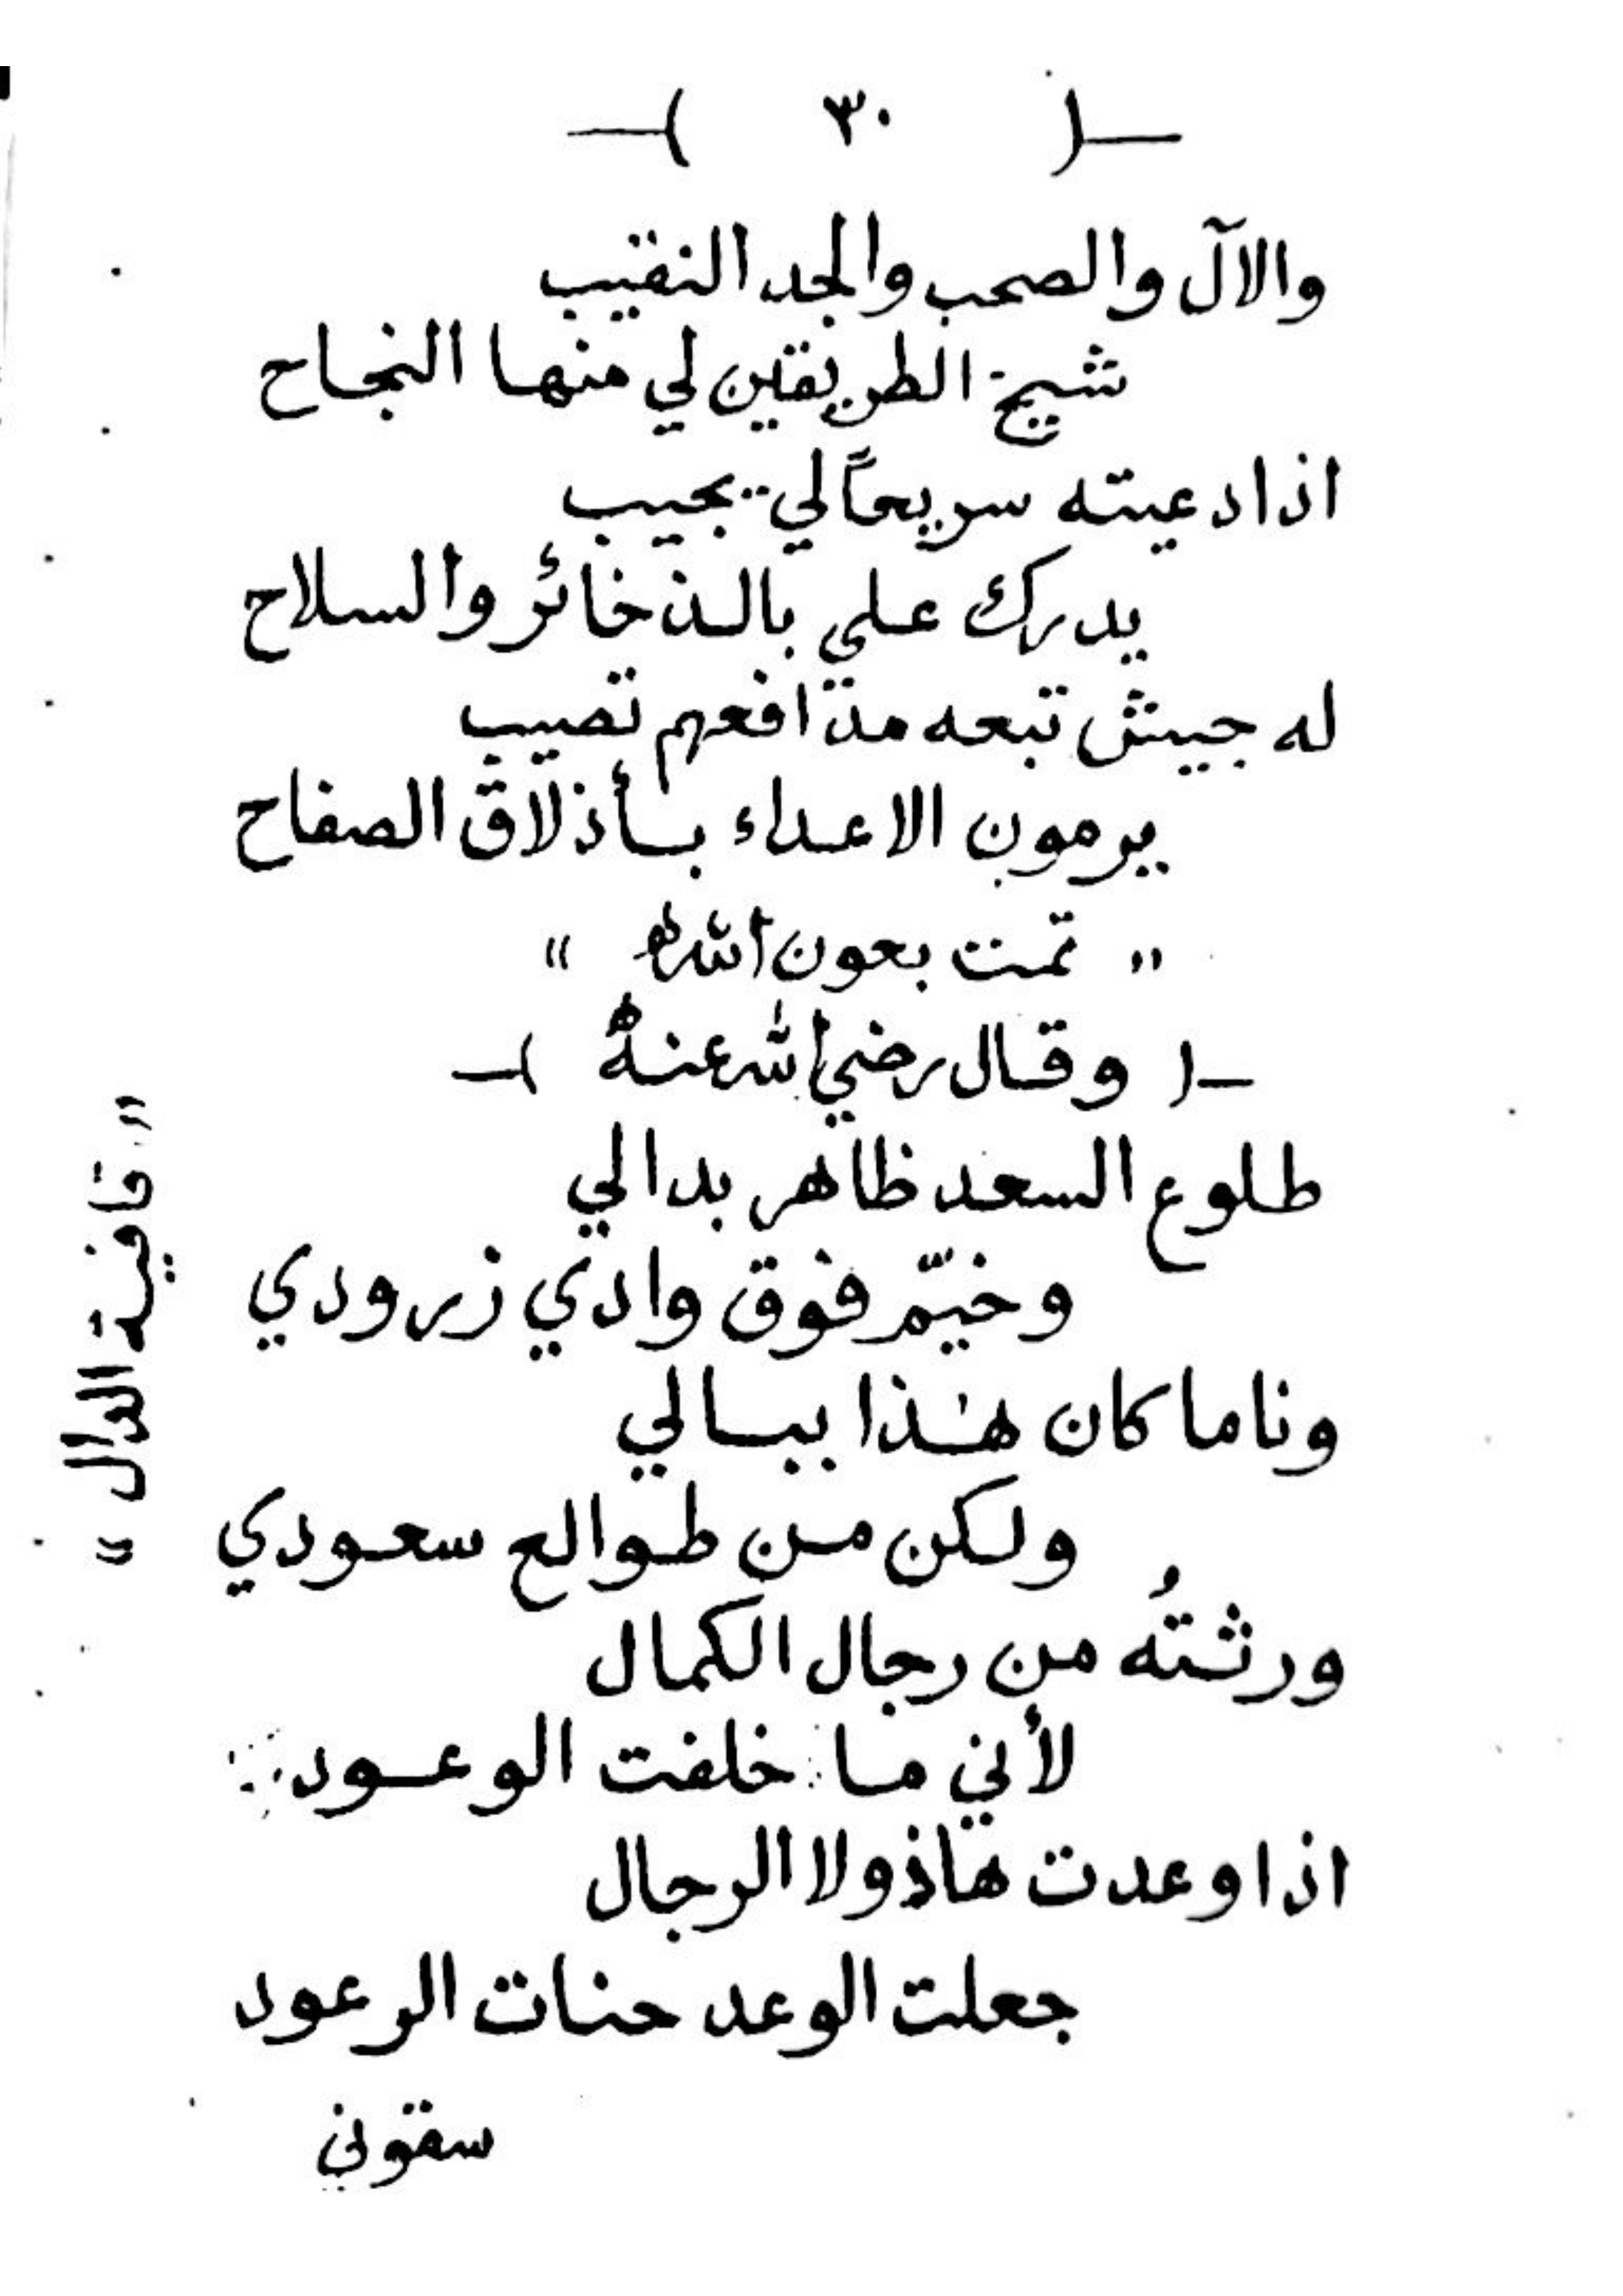 —( ٣٠ )—
والآل والصحب والجد النقيب
شيخ الطريقين لي منها النجاح
اذا دعيته سريعاً لي يجيب
يدرك علي بالذخائر والسلاح
له جيش تبعه مدافعهم تصيب
يرمون الاعداء بأذلاق الصفاح
" تمت بعون الله "
—( وقال رضي الله عنهُ )—
" قافية الدال "
طلوع السعد ظاهر بدالي
وخيّم فوق وادي زرودي
وناما كان هٰذا ببالي
ولكن من طوالع سعودي
ورثتُه من رجال الكمال
لأني ما خلفت الوعود
اذا وعدت هاذولا الرجال
جعلت الوعد حنات الرعود
سقوني